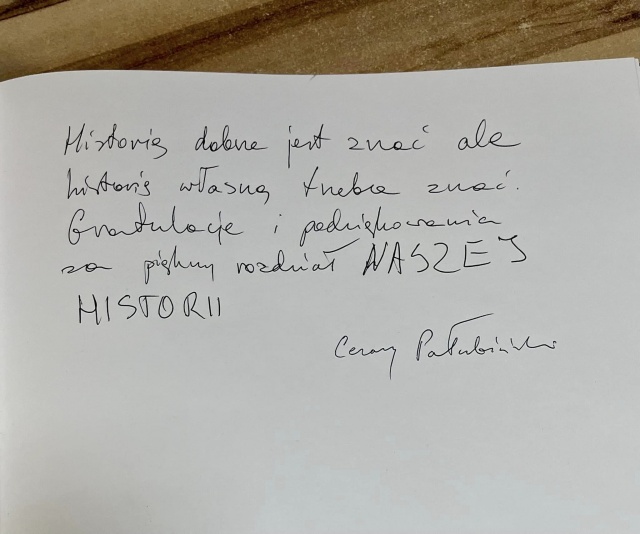 Historię dobrze jest znać ale
historię własną trzeba znać.
Gratulacje i podziękowania
za piękny rozdział NASZEJ
HISTORII
Cezary Pałubiński